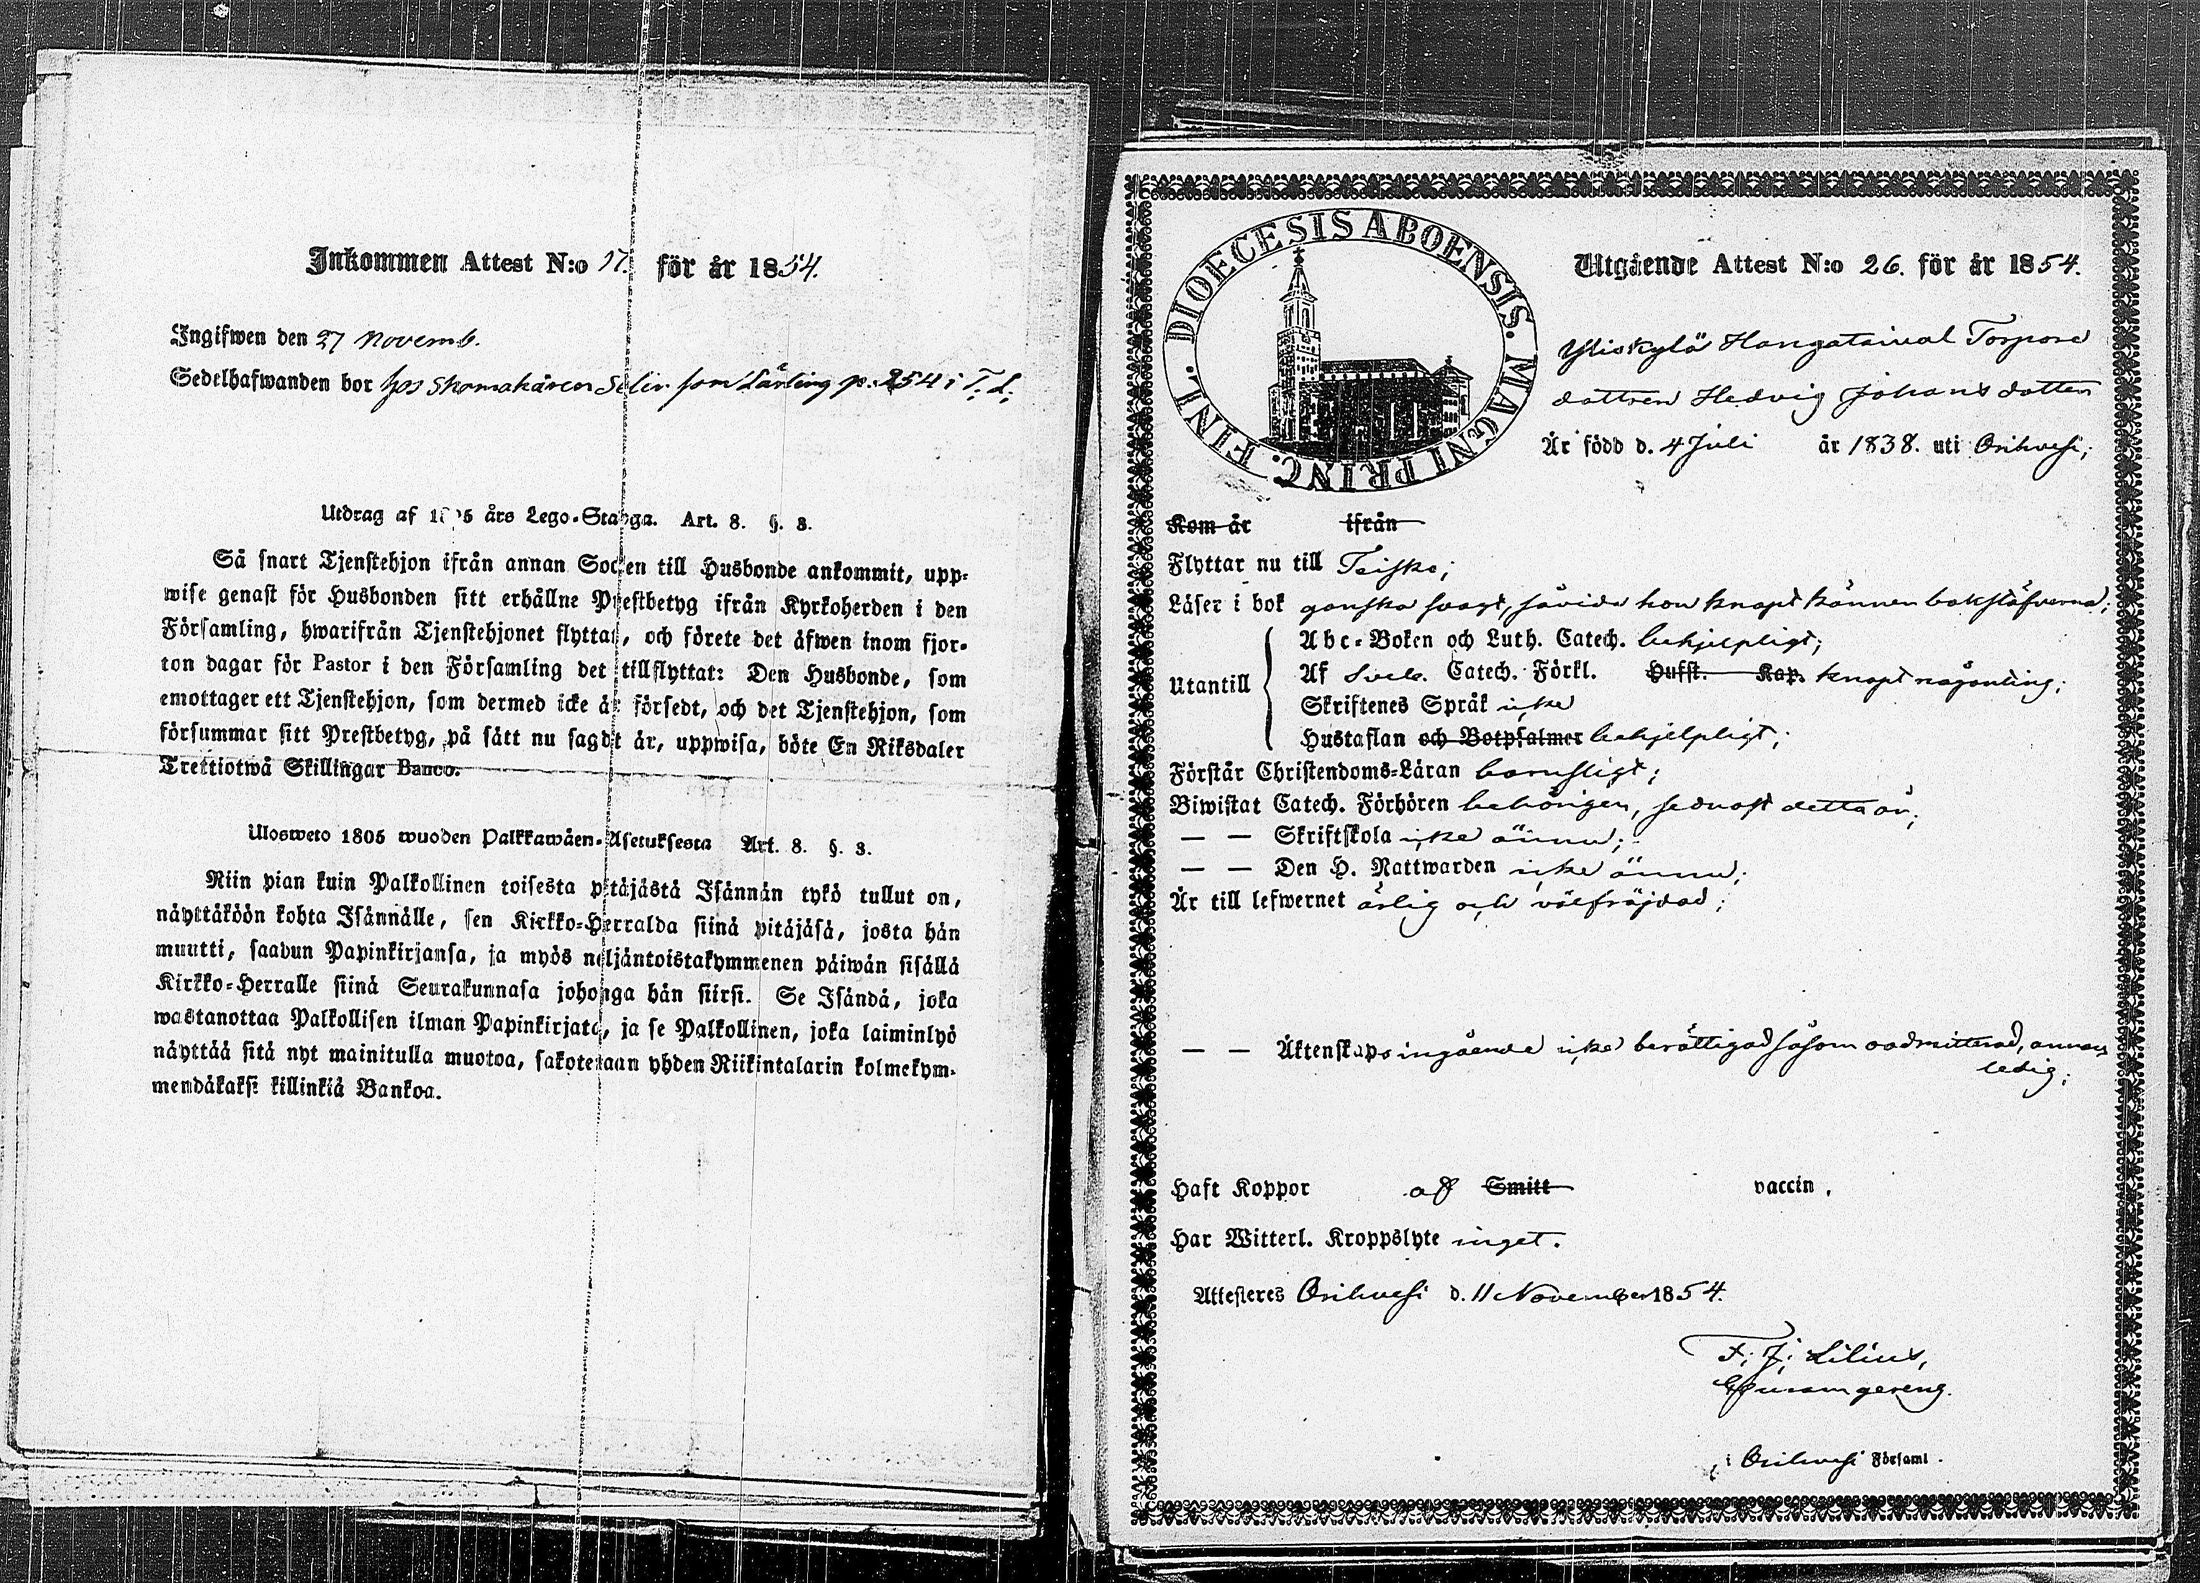 Inkommen Attest N:o 17. för år 1854.
Ingifwen den 27 Novemb.
Sedelhafwanden bor hos Skomakaren Selin som Lärling p. 254 i T. L.
Utdrag af 1805 års Lego-Stadga. Art. 8. §. 3.
Så snart Tjenstehjon ifrån annan Socken till Husbonde ankommit, upp-
wise genast för Husbonden sitt erhållne Prestbetyg ifrån Kyrkoherden i den
Församling, hwarifrån Tjenstehjonet flyttat, och förete det äfwen inom fjor-
ton dagar för Pastor i den Församling det tillflyttat: Den Husbonde, som
emottager ett Tjenstehjon, som dermed icke är försedt, och det Tjenstehjon, som
försummar sitt Prestbetyg, på sätt nu sagdt är, uppwisa, böte En Riksdaler
Trettiotwå Skillingar Banco.
Ulosweto 1805 wuoden Palkkawäen-Asetuksesta Art. 8. §. 3.
Niin pian kuin Palkollinen toisesta pitäjästä Isännän tykö tullut on,
näyttäköön kohta Isännälle, sen Kirkko-Herralda siinä pitäjäsä, josta hän
muutti, saadun Papinkirjansa, ja myös neljäntoistakymmenen päiwän sisällä
Kirkko-Herralle siinä Seurakunnasa johonga hän siirsi. Se Isändä, joka
wastanottaa Palkollisen ilman Papinkirjata, ja se Palkollinen, joka laiminlyö
näyttää sitä nyt mainitulla muotoa, sakotetaan yhden Riikintalarin kolmekym-
mendäkaksi killinkiä Bankoa.
DIOECESIS ABOENSIS. MAGNI PRINC. FINL.
Utgående Attest N:o 26. för år 1854.
Yliskylä Hangatsival Torpare
dottren Hedvig Johans dotter
Är född d. 4 Juli år 1838. uti Orihvesi;
Kom år ifrån
Flyttar nu till Teisko;
Läser i bok ganska svagt, såvida hon knapt känner bokstäfverna;
Abc-Boken och Luth. Catech. behjelpligt;
Utantill Af Sveb. Catech. Förkl. Hufst. Kap. knapt någonting;
Skriftenes Språk icke
Hustaflan och Botpsalmer behjelpligt;
Förstår Christendoms-Läran barnsligt;
Biwistat Catech. Förhören behörigen, sednast detta år;
— — Skriftskola icke ännu;
— — Den H. Nattwarden icke ännu;
Är till lefwernet ärlig och välfräjdad;
— — Äktenskaps ingående icke berättigad såsom oadmitterad, annars
ledig;
Haft Koppor af Smitt vaccin.
Har Witterl. Kroppslyte inget.
Attesteres Orihvesi d. 11 November 1854.
F. J. Lilius,
i Orihvesi Församl.